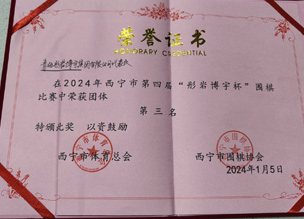 荣誉证书
HONORARY CREDENTIAL
在2024年西宁市第四届“彤岩博宇杯”围棋
比赛中荣获团体
第三名
特颁此奖 以资鼓励
西宁市体育总会 西宁市围棋协会
2024年1月5日